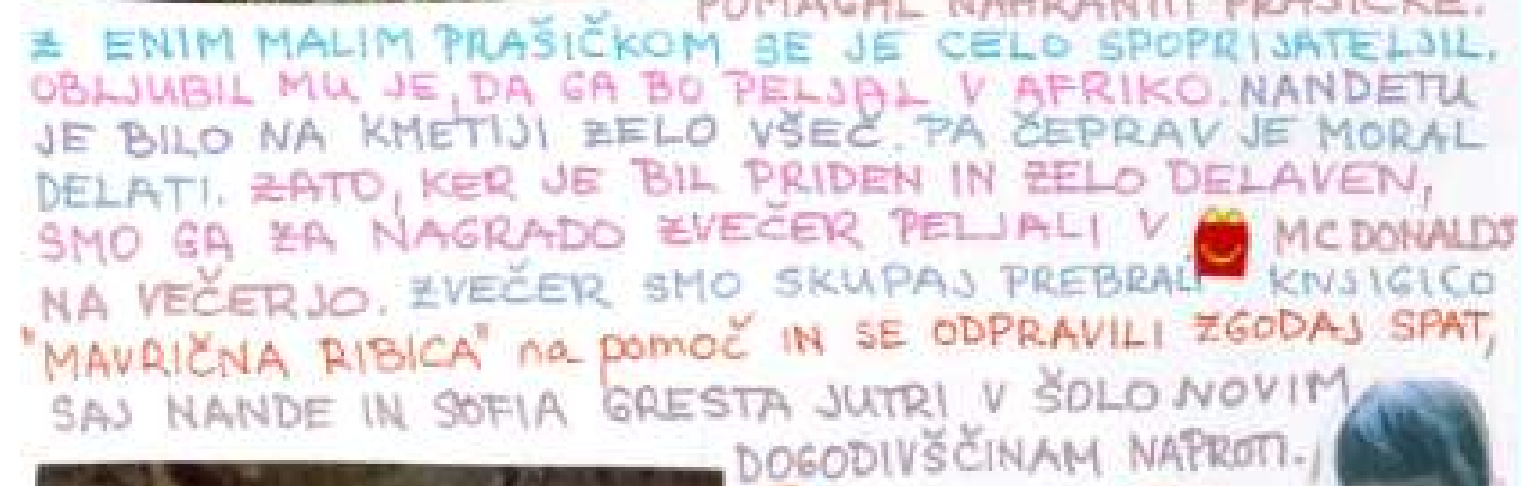 POMAGAL NAHRANITI PRAŠIČKE.
Z ENIM MALIM PRAŠIČKOM SE JE CELO SPOPRIJATELJIL.
OBLJUBIL MU JE, DA GA BO PELJAL V AFRIKO. NANDETU
JE BILO NA KMETIJI ZELO VŠEČ. PA ČEPRAV JE MORAL
DELATI. ZATO, KER JE BIL PRIDEN IN ZELO DELAVEN,
SMO GA ZA NAGRADO ZVEČER PELJALI V MCDONALDS
NA VEČERJO. ZVEČER SMO SKUPAJ PREBRALI KNJIGICO
"MAVRIČNA RIBICA" na pomoč IN SE ODPRAVILI ZGODAJ SPAT,
SAJ NANDE IN SOFIA GRESTA JUTRI V ŠOLO NOVIM
DOGODIVŠČINAM NAPROTI.